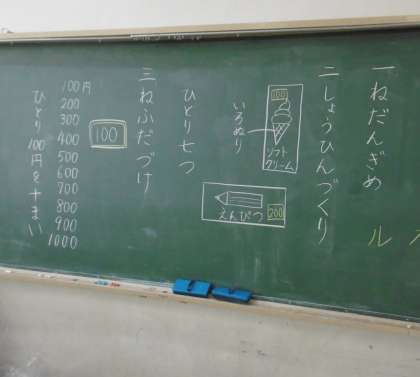 一ねだんぎめ
二しょうひんづくり
100
ソフト
クリーム
いろぬり
えんぴつ
200
ひとり七つ
三ねふだづけ
100
100円
200
300
400
500
600
700
800
900
1000
ひとり100円を十まい
ル